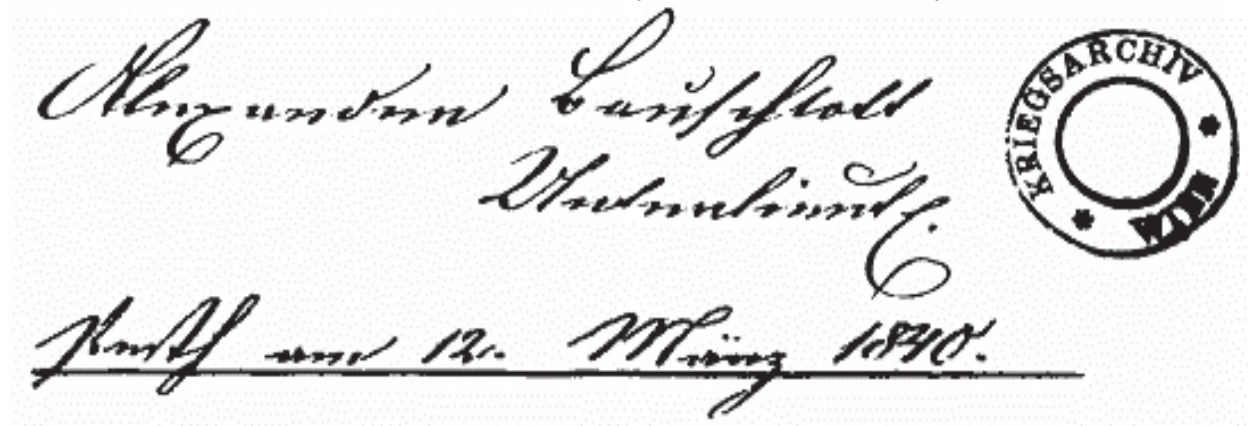 Alexander Bauschlott
Unterlieut.
Pesth am 12. März 1840.
KRIEGSARCHIV * WIEN *